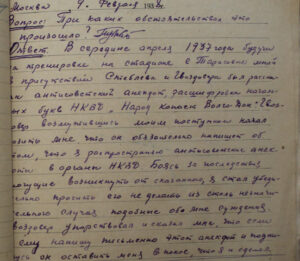 Москва 9. Февраля 193
Вопрос: При каких обстоятельствах это
произошло?
Ответ. В середине апреля 1937 года будучи
на тренировке на стадионе с Тарасовым мной
в присутствии и был расска-
антисоветский анекдот, расшифровки началь-
ных букв НКВД, Народ Волга-Дон.
возмутившись моим поступком начал
мне что он обязательно напишет об
том, что я распространяю антисоветские анек-
в органы НКВД Боясь за последствия
могущие возникнуть от сказанного, я стал убеди-
тельно просить его не делать из столь незначи-
тельного случая подобные обо мне суждения.
упорствовал и сказал мне, что если
ему напишу письменно этот анекдот и подпи-
он оставит меня в покое, что я и сделал